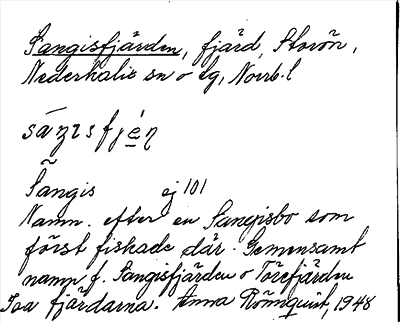 Sangisfjärden, fjärd, Storön,
Nederkalix sn o lg, Norrb. l
Sangis ej 101
Namn. efter en Sangisbo som
först fiskade där. Gemensamt
namn f. Sangisfjärden o Törefjärden
fjärdarna. Anna Rönnquist, 1948